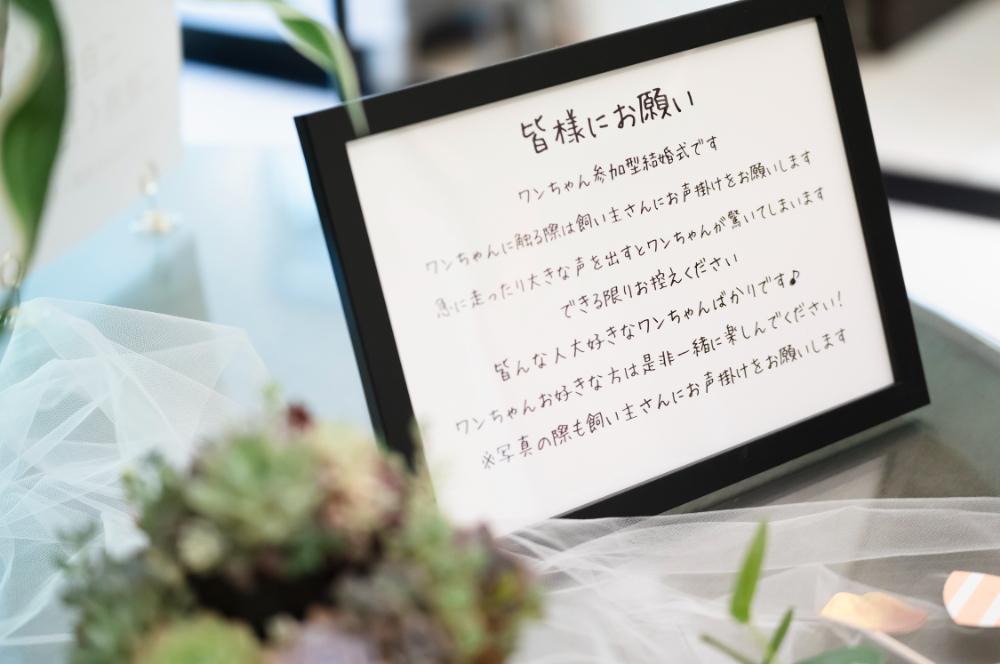 皆様にお願い
ワンちゃん参加型結婚式です
ワンちゃんに触る際は飼い主さんにお声掛けをお願いします
急に走ったり大きな声を出すとワンちゃんが驚いてしまいます
できる限りお控えください
皆んな人大好きなワンちゃんばかりです♪
ワンちゃんお好きな方は是非一緒に楽しんでください!
※写真の際も飼い主さんにお声掛けをお願いします